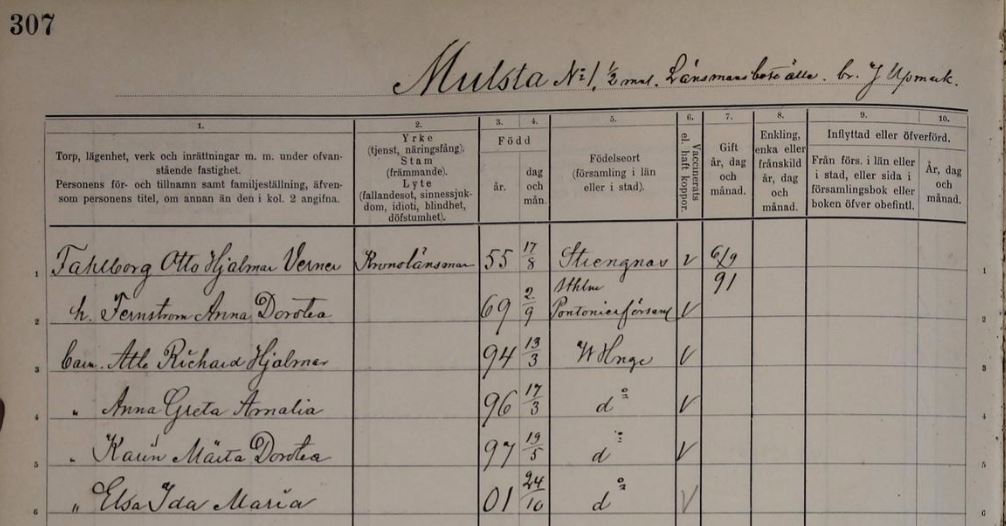 307
Mulsta No 1, 1/2 mtl. Länsmansboställe. br. J Upmark.
1. 2. 3. 4. 5. 6. 7. 8. 9. 10.
Torp, lägenhet, verk och inrättningar m. m. under ofvan-
stående fastighet.
Personens för- och tillnamn samt familjeställning, äfven-
som personens titel, om annan än den i kol. 2 angifna.
Yrke
(tjenst, näringsfång).
Stam
(främmande).
Lyte
(fallandesot, sinnessjuk-
dom, idioti, blindhet,
döfstumhet).
Född
år.
dag
och
mån.
Födelseort
(församling i län
eller i stad).
Vaccinerats
el. haft koppor.
Gift
år, dag
och
månad.
Enkling,
enka eller
frånskild
år, dag
och
månad.
Inflyttad eller öfverförd.
Från förs. i län eller
i stad, eller sida i
församlingsbok eller
boken öfver obefintl.
År, dag
och
månad.
1 Fahlborg Otto Hjalmar Verner Kronolänsman 55 17/8 Strengnäs v 6/9 91 1
2 h. Fernstrom Anna Dorotea 69 2/9 Sthlm Pontonierförsaml V 2
3 barn. Atle Richard Hjalmar 94 13/3 V 3
4 " Anna Greta Amalia 96 17/3 do V 4
5 " Karin Märta Dorotea 97 19/5 do V 5
6 " Elsa Ida Maria 01 24/10 do V 6